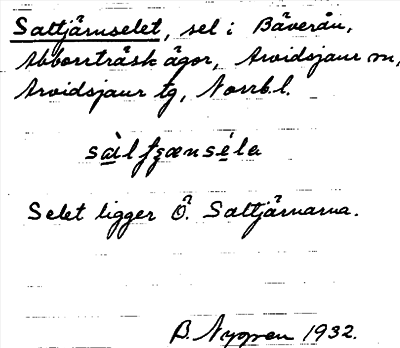 Saltjärnselet, sel i Bäverån,
Abborrträsk ägor, Arvidsjaur sn,
Arvidsjaur tg, Norrb.l.
Selet ligger Ö. Saltjärnarna.
B. Nygren 1932.